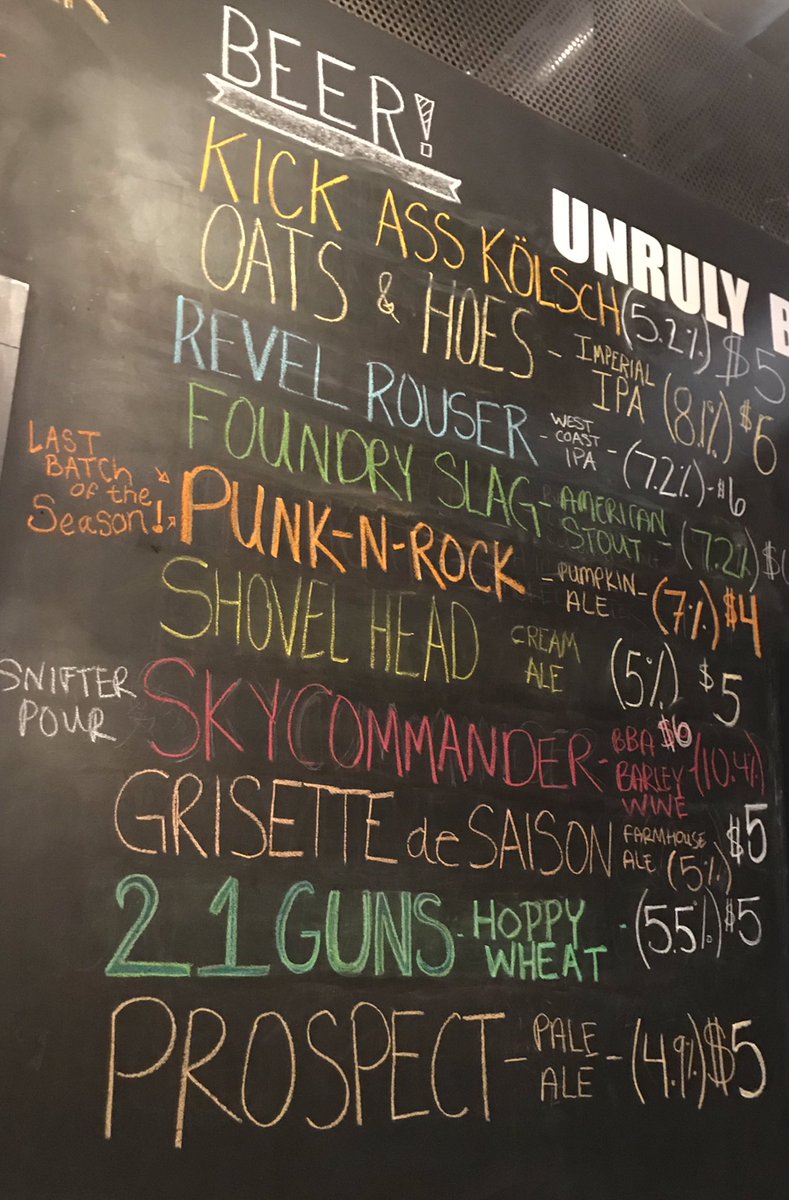 BEER!
UNRULY
KICK ASS KÖLSCH (5.2%) $5
OATS & HOES - IMPERIAL IPA (8.1%) $6
REVEL ROUSER - WEST COAST IPA - (7.2%) - $6
FOUNDRY SLAG - AMERICAN STOUT - (7.2%)
LAST BATCH of the Season!
PUNK-N-ROCK - PUMPKIN ALE - (7%) $4
SHOVEL HEAD CREAM ALE (5%) $5
SNIFTER POUR
SKYCOMMANDER - BBA BARLEY WINE $6 (10.4%)
GRISETTE de SAISON FARMHOUSE ALE (5%) $5
21 GUNS - HOPPY WHEAT - (5.5%) $5
PROSPECT - PALE ALE - (4.9%) $5